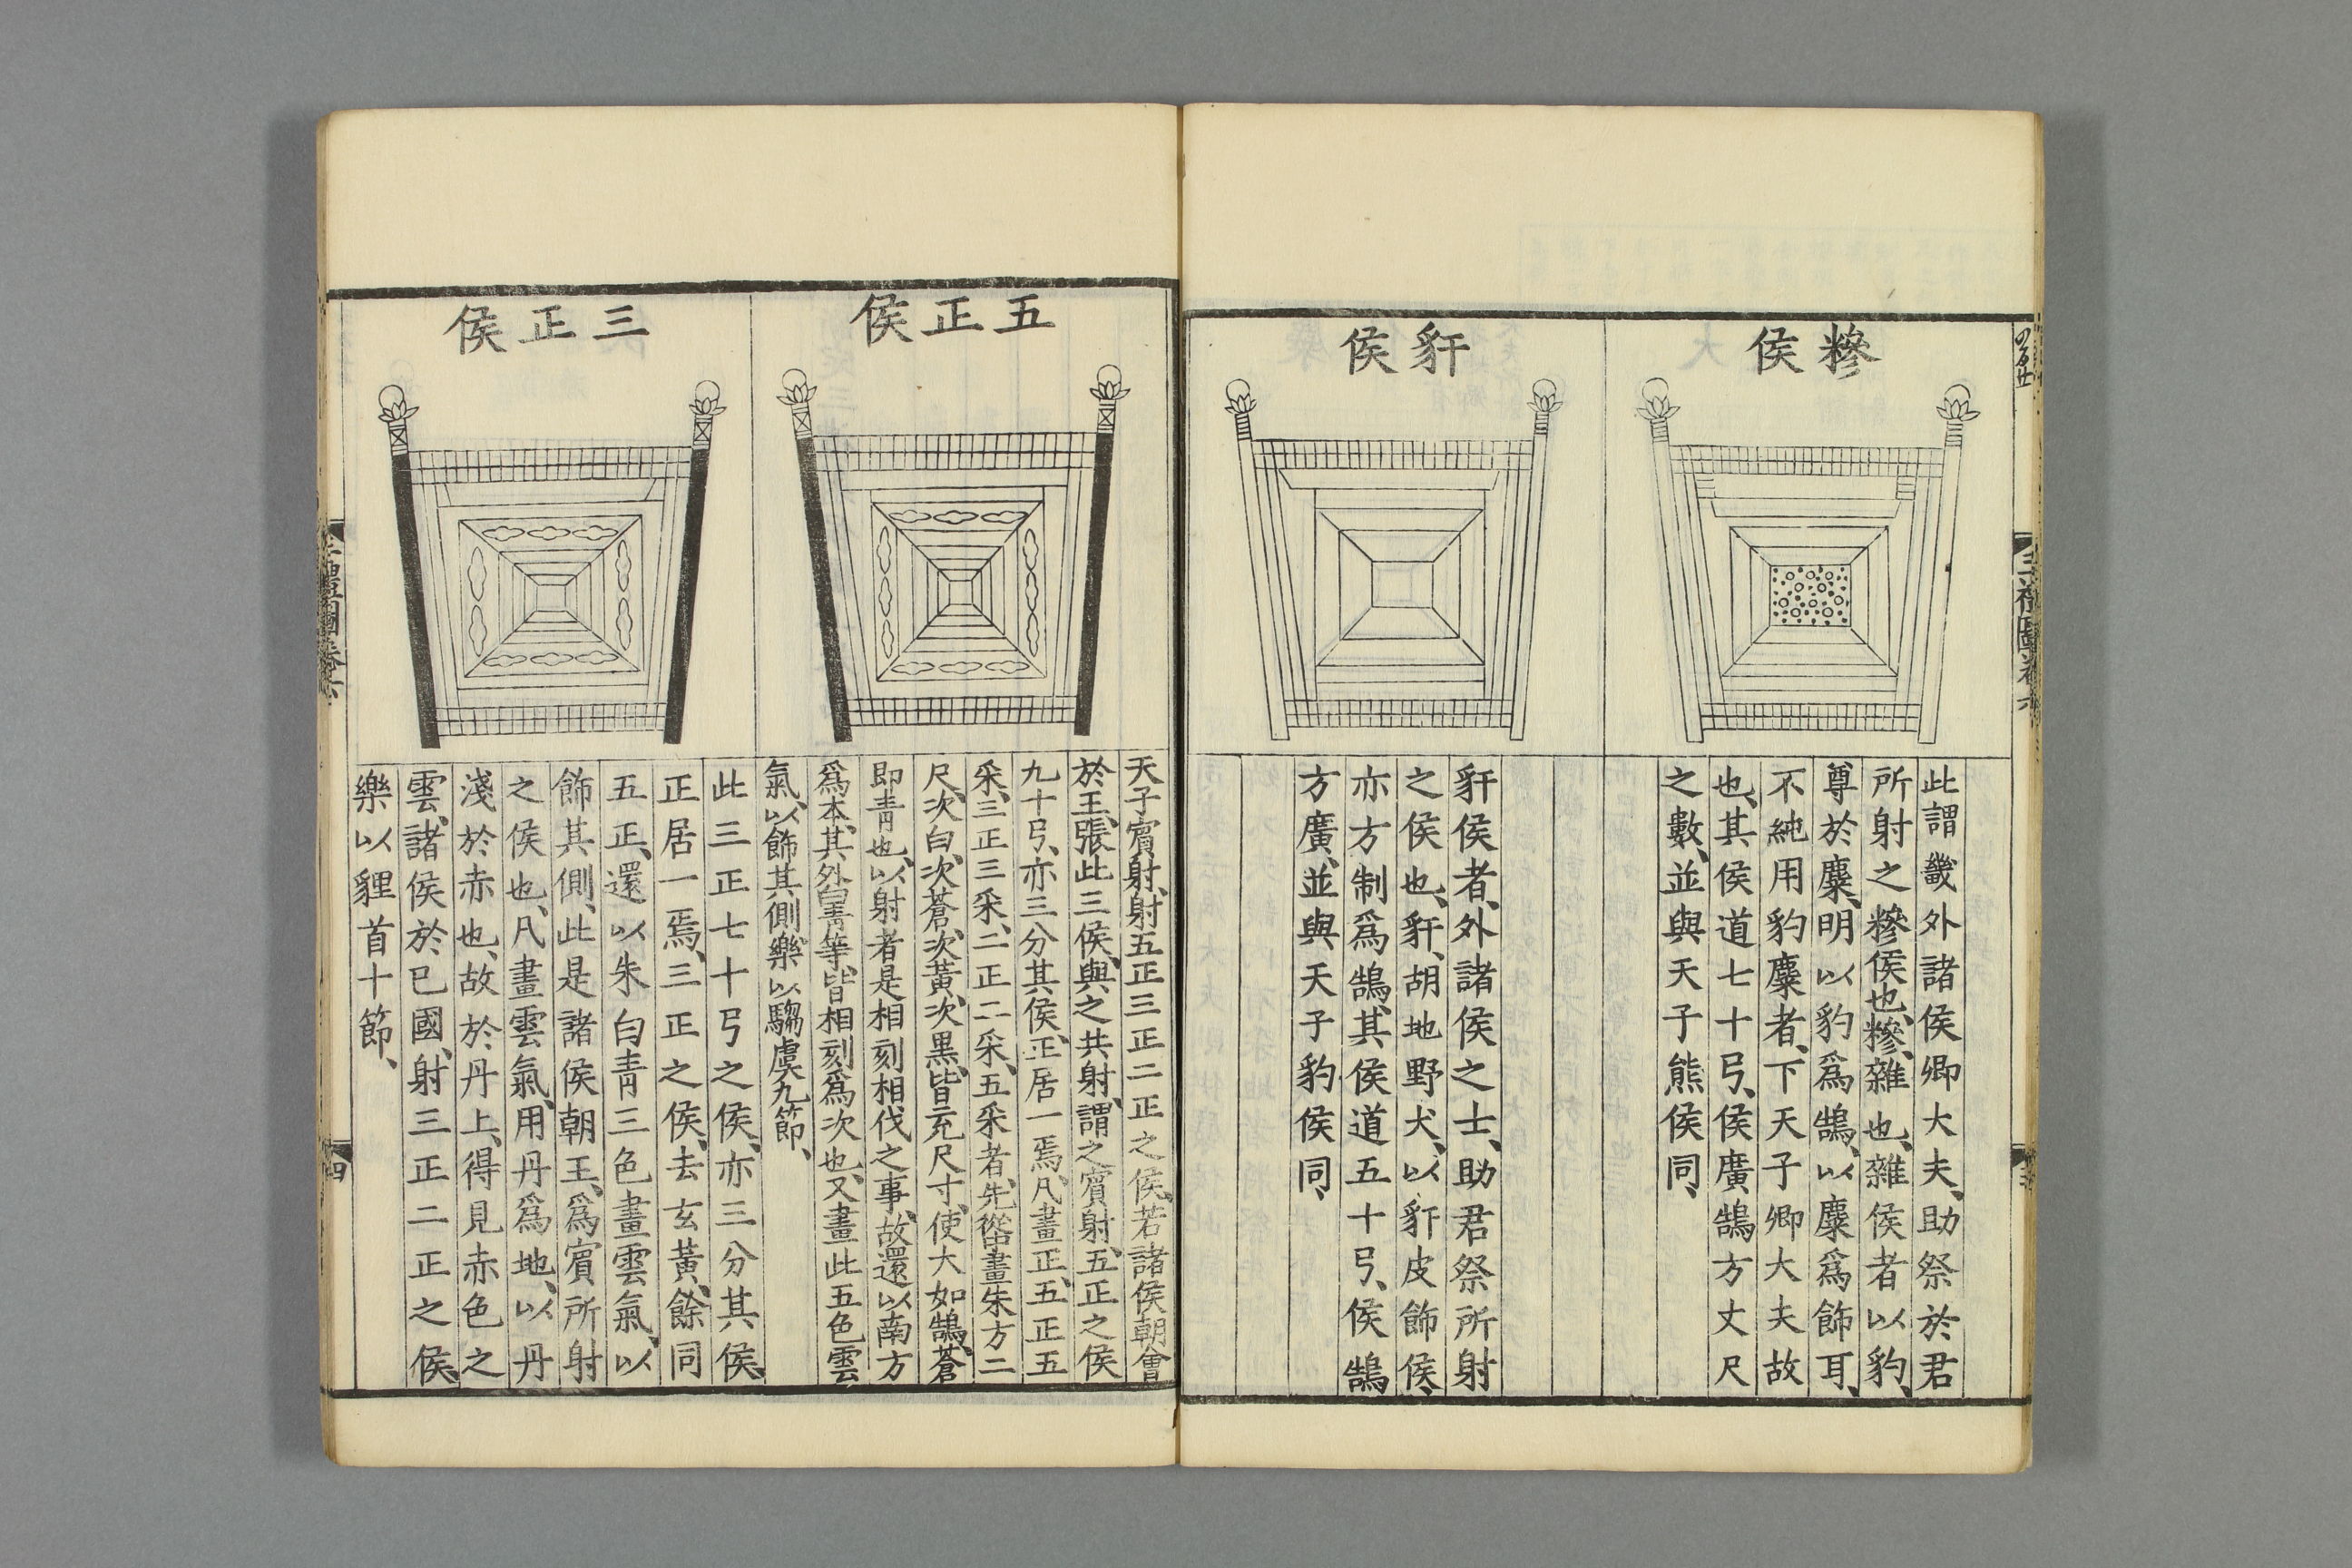 糝侯
此謂畿外諸侯卿大夫、助祭於君
所射之糝侯也、糝、雜也、雜侯者以豹、
尊於麋、明以豹爲鵠、以麋爲飾耳、
不純用豹麋者、下天子卿大夫故
也、其侯道七十弓、侯廣鵠方丈尺
之數、並與天子熊侯同、
豻侯
豻侯者、外諸侯之士、助君祭所射
之侯也、豻、胡地野犬、以豻皮飾侯、
亦方制爲鵠、其侯道五十弓、侯鵠
方廣、並與天子豹侯同、
三禮圖卷六
五正侯
天子賓射、射五正三正二正之侯、若諸侯朝會
於王、張此三侯、與之共射、謂之賓射、五正之侯
九十弓、亦三分其侯、正居一焉、凡畫正、五正五
采、三正三采、二正二采、五采者、先從中畫朱方二
尺、次白、次蒼、次黃、次黒、皆充尺寸、使大如鵠、蒼
即青也、以射者是相刻相伐之事、故還以南方
爲本、其外白青等、皆相刻爲次也、又畫此五色雲
氣、以飾其側、樂以騶虞九節、
三正侯
此三正七十弓之侯、亦三分其侯、
正居一焉、三正之侯、去玄黃、餘同
五正、還以朱白青三色畫雲氣、以
飾其側、此是諸侯朝王、爲賓所射
之侯也、凡畫雲氣、用丹爲地、以丹
淺於赤也、故於丹上、得見赤色之
雲、諸侯於巳國、射三正二正之侯、
樂以貍首十節、
三禮圖卷六
四